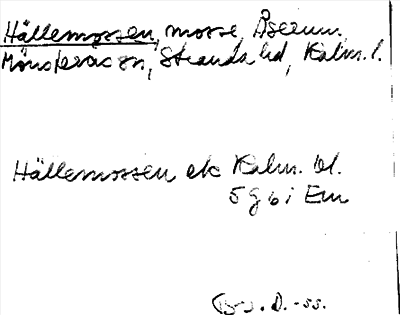 Hällemossen, mosse, Åserum,
Mönsterås sn, Stranda hd, Kalm. l.
Hällemossen ek Kalm. bl.
5 g b i Em
D. -55.